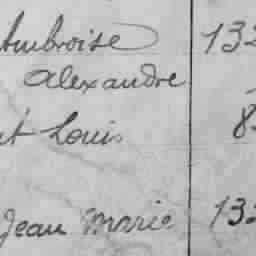 Ambroise 132
Alexandre
nt Louis 8
Jean Marie 133